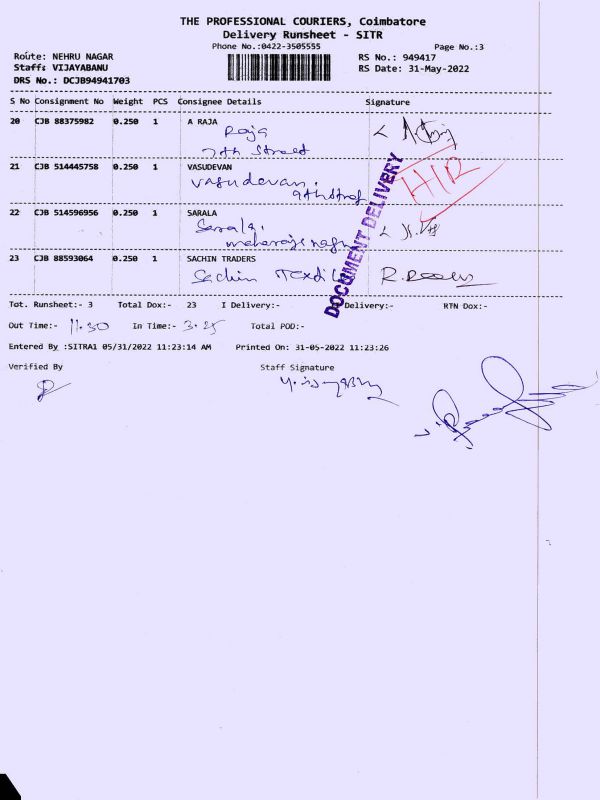 THE PROFESSIONAL COURIERS, Coimbatore
Delivery Runsheet - SITR
Phone No.:0422-3505555
Page No.:3
Route: NEHRU NAGAR
RS No.: 949417
Staff: VIJAYABANU
RS Date: 31-May-2022
DRS No.: DCJB94941703
S No Consignment No Weight PCS Consignee Details Signature
20 CJB 88375982 0.250 1 A RAJA
Raja
7th Street
21 CJB 514445758 0.250 1 VASUDEVAN
Vasudevan.
9th Street
H/R
22 CJB 514596956 0.250 1 SARALA
Sarala.
DOCUMENT DELIVERY
23 CJB 88593064 0.250 1 SACHIN TRADERS
Sachin
Tot. Runsheet:- 3 Total Dox:- 23 I Delivery:- Delivery:- RTN Dox:-
Out Time:- 11.30 In Time:- 3.25 Total POD:-
Entered By :SITRA1 05/31/2022 11:23:14 AM Printed On: 31-05-2022 11:23:26
Verified By Staff Signature